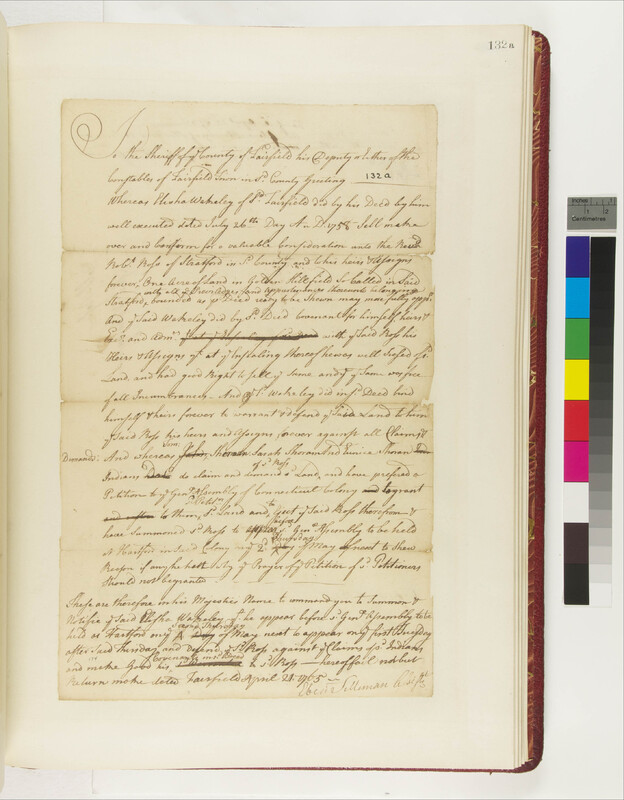 132a
To the Sheriff of ye County of Fairfield his Deputy or Either of the
Constables of Fairfield Town in Sd. County Greeting
132a
Whereas Elisha Wakeley of Sd. Fairfield did by his Deed by him
well executed dated July 26th Day A.D. 1758 Sell make
over and Confirm for a valuable Consideration unto the
Robt. Ross of Stratford in Sd. County and to his heirs & Assigns
forever, One Acre of Land in Golden Hill field So Called in Said
Stratford, bounded as ye Deed ready to be Shewn may more fully appr.
with all ye Privileges and Appurtenances thereunto belonging
And ye Said Wakeley did by Sd. Deed Covenant for himself heirs &
Exrs. and Admrs. with ye Said Ross his
Heirs & Assigns yt. at ye Ensealing thereof he was well Seased of sd.
Land and had good Right to Sell ye Same and yt ye Same was free
of all Incumbrances. And ye Sd. Wakeley did in sd. Deed bind
himself & heirs forever to warrant & defend ye Said Land to him
ye Said Ross his heirs and Assigns forever against all Claims &
Demands. And whereas John Sherman Sarah Sherman and Eunice Sherman
Indians do claim and demand sd. Land, and have prefered a
of sd. Ross
Petition to ye Genl. Assembly of Connecticut Colony to grant
to them, sd. Land and, to Oust ye Said Ross therefrom &
have Summoned sd. Ross to appear before sd. Genl. Assembly to be held
at Hartford in said Colony on ye 2d. Thursday of May next to Shew
Reason if any he hath why ye Prayer of ye Petition of sd. Petitioners
Should not be granted
These are therefore in his Majesties Name to command you to Summon &
Notifie ye Said Elisha Wakeley yt he appear before sd. Genl. Assembly to be
held at Hartford on ye Second Thursday of May next to appear on ye first Tuesday
after Said Thursday and Defend ye Sd. Ross against ye Claims of sd. Indians
and make Good his Covenants in sd. Deed to sd. Ross hereof fail not but
Return make dated Fairfield April 21 1765
Ebenr. Silliman Assist